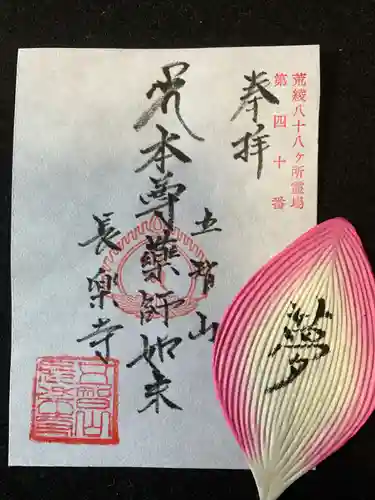 荒綾八十八ヶ所霊場
第四十番
奉拝
本尊薬師如来
五智山
長楽寺
夢